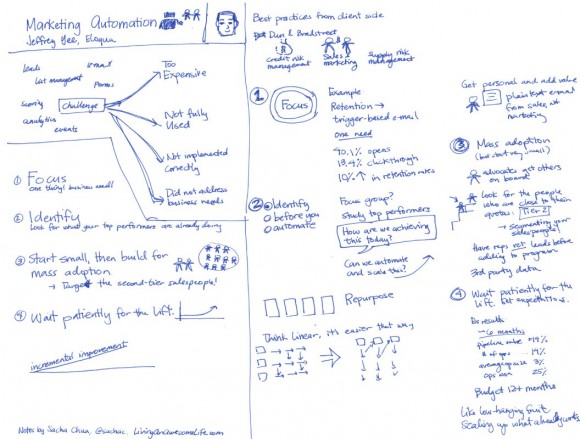 Marketing Automation
Jeffrey Yee, Eloqua
Leads
e-mail
List management
Forms
Scoring
Challenge
analytics
events
Too
Expensive
Not fully
Used
Not implemented
correctly
Did not address
business needs
① Focus
one thing! business need!
② Identify
Look for what your top performers are already doing
③ Start small, then build for
mass adoption
→ Target the second-tier salespeople!
④ Wait patiently for the lift.
incremental improvement
Notes by Sacha Chua, @sachac, LivingAnAwesomeLife.com
Best practices from client side
Dun & Bradstreet
credit risk
management
Sales &
marketing
Supply risk
management
①
Focus
Example
Retention →
trigger-based e-mail
one need
40.1% opens
13.4% clickthrough
10% ↑ in retention rates
② Identify
before you
automate
Focus group?
Study top performers
How are we achieving
this today?
Can we automate
and scale this?
Repurpose
Think linear, it's easier that way
Get personal and add value
plain text e-mail
from sales, not
marketing
③ Mass adoption
(but start very small)
advocates get others
on board
Look for the people
who are close to their
quotas: Tier 2
→ segmenting your
salespeople!
Have reps not leads before
adding to program
3rd party data
④ Wait patiently for the
lift. Set expectations.
results
~6 months
pipeline
19%
# of opps
19%
average size 3%
25%
Budget 12+ months
Like low-hanging fruit
Scaling up what already works